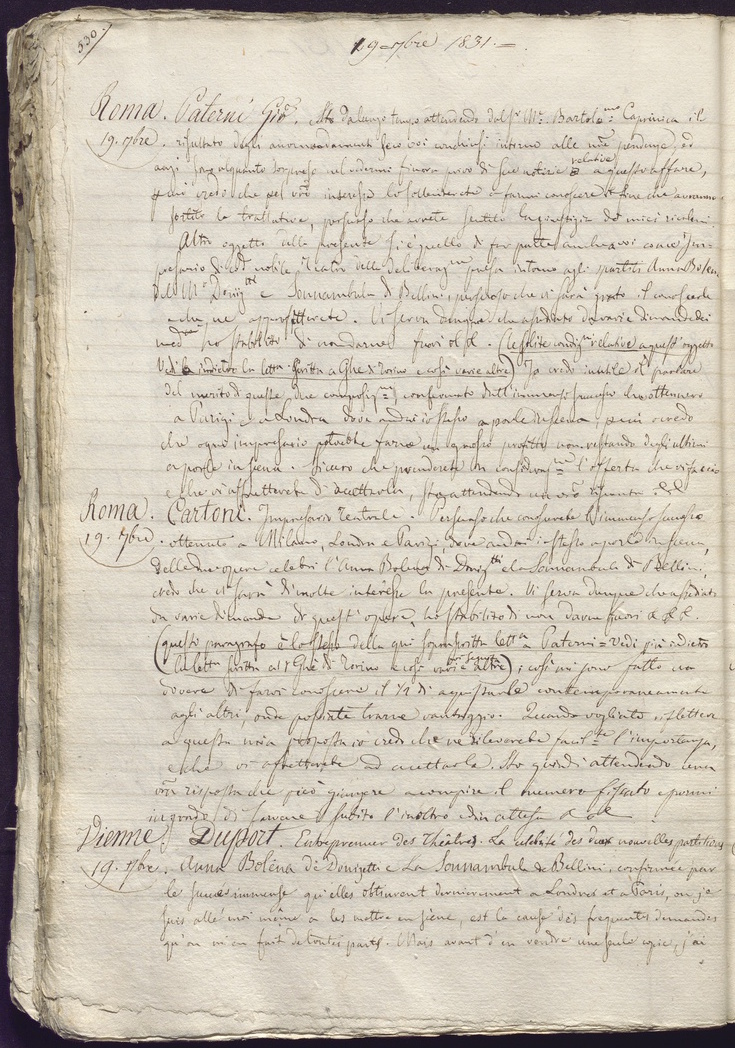 530.
19 = 7bre 1831. =
Roma. Paterni Gio. Sto da lungo tempo attendendo dal Sr. Mo. Bartolomeo Capranica il
19. 7bre. risultato degli seco voi conchiusi intorno alle nre pendenze, ed
anzi sono alquanto sorpreso nel vedermi finora privo di sue notizie relative a questo affare,
credo che pel vro interesse lo solleciterete a farmi conoscere il fine che avranno
sortito le trattative, persuaso che avrete sentito l'ingiustizia de' miei
Altro oggetto della presente si è quello di far parte anche a voi come Im-
presario di nobile Teatro delle presa intorno agli spartiti Anna Bolena
del Mo. Donizetti e Sonnambula di Bellini, persuaso che vi sarà grato il conoscerle
e che ne approfitterete. Vi serva dunque che assediato da varie dimande dei
medmi ho stabilito di non darne fuori &. &. (le solite condizni relative a quest'oggetto
Vedi indietro la lettra scritta a Ghe di Torino e così varie altre) Io credo inutile il parlare
del merito di queste due composizni, confermato dall'immenso successo che ottennero
a Parigi e a Londra dove andai io stesso a porle in scena; e più credo
che ogni impresario potrebbe farne un grosso profitto non restando degli ultimi
a porle in scena. Sicuro che prenderete in considerazne l'offerta che vi faccio
e che vi affretterete di accettarla, sto attendendo un vro riscontro. &. &.
Roma. Cartoni. Impresario Teatrale. Persuaso che conoscerete l'immenso successo
19. 7bre. ottenuto a Milano, Londra e Parigi, dove andai io stesso a porle in scena,
delle due opere celebri l'Anna Bolena di Donizetti e la Sonnambula di Bellini,
credo che vi sarà di molto interesse la presente. Vi serva dunque che assediato
da varie dimande di quest'opere, ho stabilito di non darne fuori &. &. &.
(questo paragrafo è lo stesso della qui soprascritta letta a Paterni = Vedi più indietro
la letta scritta al Sr Ghe di Torino e così varie altre); così mi sono fatto un
dovere di farvi conoscere il di acquistarle contemporaneamente
agli altri, onde possiate trarne vantaggio. Quando vogliate riflettere
a questa mia proposta io credo che ne rileverete facilte l'importanza,
e che vi affretterete ad accettarla. Sto quindi attendendo una
vra risposta che può giungere a compire il numero fissato e pormi
in grado di farvene subito l'inoltro ed in attesa &. &.
Vienne. Duport. Entrepreneur des Théâtres. La célébrité des deux nouvelles partitions
19. 7bre. Anna Boléna de Donizetti e La Sonnambula de Bellini, confirmée par
le succès immense qu'elles obtinrent dernierement a Londres et a Paris, ou je
suis allé moi même a les mettre en scène, est la cause des frequentes demandes
qu'on m'en fait de toutes parts. Mais avant d'en vendre une seule copie, j'ai